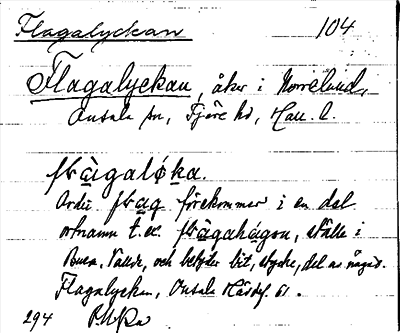 Flagalyckan 104
Flagalyckan, åker i Norrelund,
Onsala sn, Fjäre hd, Hall. l.
flàgaløka.
Ordet flag förekommer i en del
ortnamn t. ex. flàgahágen, ställe i
och betyder bit, stycke, del av något.
Flagalyckan, Onsala 61.
294